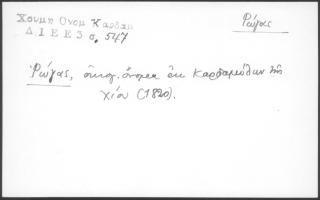 Χουμη Ονομ Καρδαμ
Δ Ι Ε Ε 3 σ. 547
Ρώγας
Ρώγας, οἰκογ. ὄνομα ἐκ Καρδαμύλων τῆς
Χίου (1820).